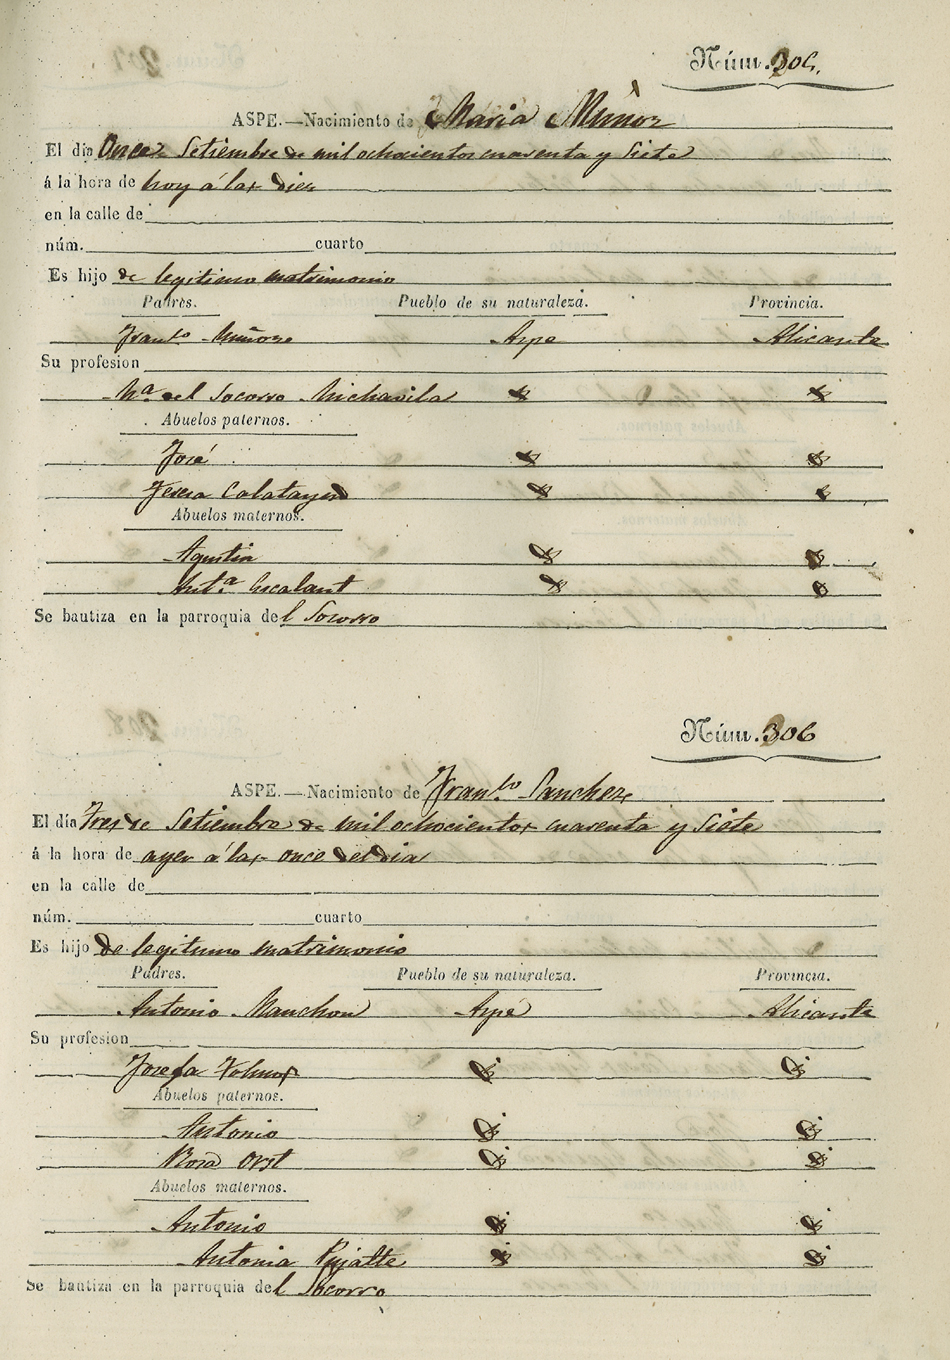 Núm. 305.
ASPE.—Nacimiento de Maria Muñoz
El dia Once Setiembre de mil ochocientos cuarenta y Siete
á la hora de hoy á las diez
en la calle de
núm. cuarto
Es hijo de legitimo matrimonio
Padres. Pueblo de su naturaleza. Provincia.
Franco Muñoz Aspe Alicante
Su profesion
Ma. del Socorro Michavila
Abuelos paternos.
José
Teresa Calatayud
Abuelos maternos.
Agustin
Anta. Escalant
Se bautiza en la parroquia del Socorro
Núm. 306
ASPE.—Nacimiento de Franco Sanchez
El dia Tres de Setiembre de mil ochocientos cuarenta y Siete
á la hora de ayer á las once del dia
en la calle de
núm. cuarto
Es hijo de legitimo matrimonio
Padres. Pueblo de su naturaleza. Provincia.
Antonio Manchon Aspe Alicante
Su profesion
Josefa
Abuelos paternos.
Antonio
Rosa
Abuelos maternos.
Antonio
Antonia Pujalte
Se bautiza en la parroquia del Socorro